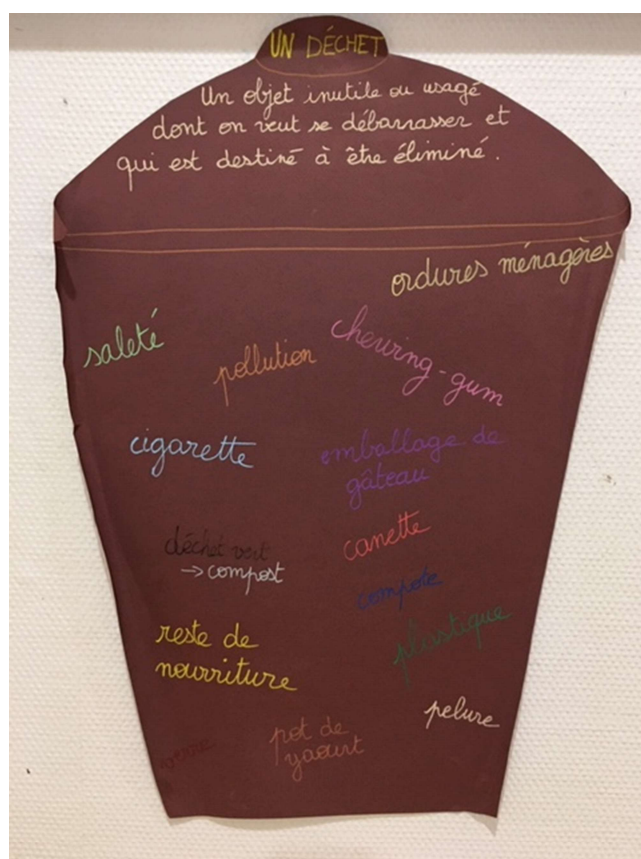 UN DÉCHET
Un objet inutile ou usagé
dont on veut se débarrasser et
qui est destiné à être éliminé.
ordures ménagères
saleté
pollution
chewing-gum
cigarette
emballage de
gâteau
déchet vert
→ compost
canette
compote
reste de
nourriture
plastique
pelure
pot de
yaourt